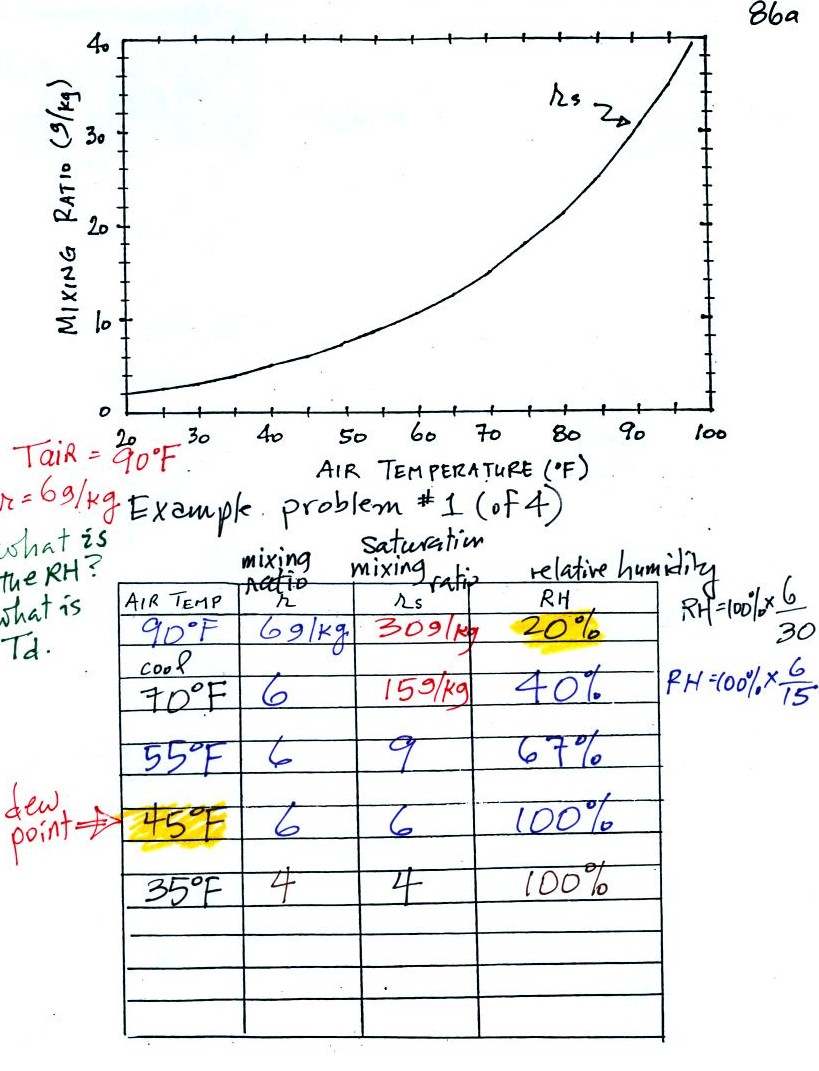 86a
40
30
20
10
0
MIXING RATIO (g/kg)
rs
20 30 40 50 60 70 80 90 100
AIR TEMPERATURE (°F)
TAIR = 90°F
r = 6g/kg
what is
the RH?
what is
Td.
Example problem #1 (of 4)
mixing ratio
saturation mixing ratio
relative humidity
AIR TEMP r rs RH
90°F 6g/kg 30g/kg 20%
RH=100%×6/30
cool
70°F 6 15g/kg 40%
RH=100%×6/15
55°F 6 9 67%
dew
point
45°F 6 6 100%
35°F 4 4 100%